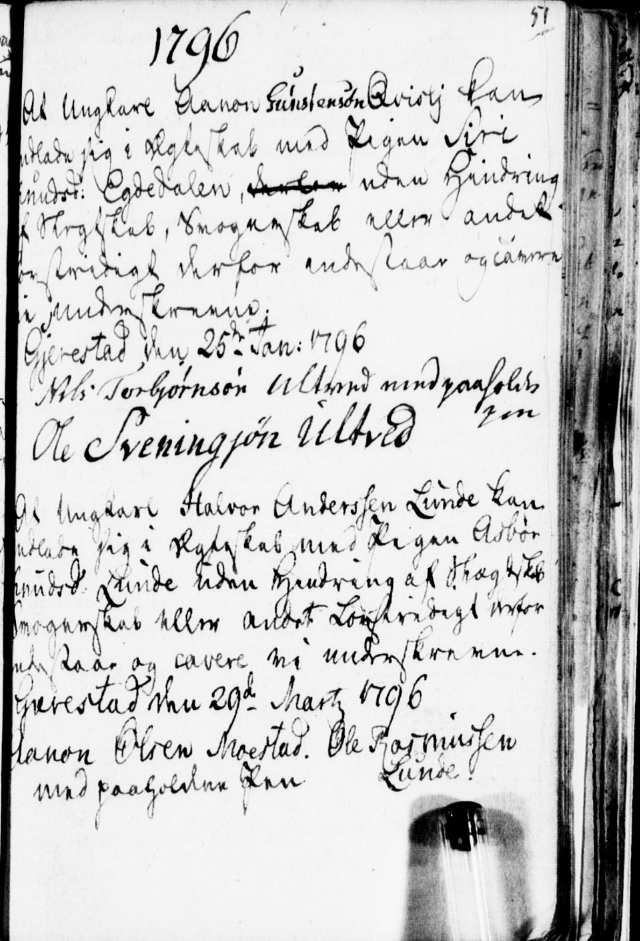 51
1796
At Ungkarl Aanon Gunstensøn Qvisti kan
indlade sig i Ægteskab med Pigen Siri
Knudsd: Egdedalen, uden Hindring
af Slegtskab, Svogerskab eller andet
lovstridigt derfor indestaar og cavere
vi underskrevne.
Gjerestad den 25de Jan: 1796
Nils Torbjørnsøn Ultved med paaholden
pen
Ole Sveningsøn Ultved
At Ungkarl Halvor Anderssen Lunde kan
indlade sig i Ægteskab med Pigen Asbør
Knudsd. Lunde uden Hindring af Slægtskab
Svogerskab eller andet Lovstridigt derfor
indestaar og cavere vi underskrevne.
Gierestad den 29de Martz 1796
Aanon Olsen Moestad. Ole Rasmussen
med paaholden Pen Lunde.